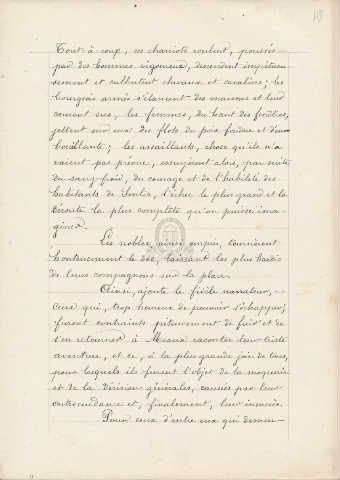 Tout-à coup, ces chariots roulent, poussés
par des hommes vigoureux, descendent impétueu-
sement et culbutent chevaux et cavaliers; les
bourgeois armés s'élancent des maisons et leur
courent sus, les femmes, du haut des fenêtres,
jettent sur eux des flots de poix fondue et d'eau
bouillante; les assaillants, chose qu'ils n'a-
vaient pas prévue, essuyèrent alors, par suite
du sang-froid, du courage et de l'habilité des
habitants de Senlis, l'échec le plus grand et la
déroute la plus complète qu'on puisse ima-
giner.
Les nobles, ainsi surpris, tournèrent
honteusement le dos, laissant les plus hardis
de leurs compagnons sur la place.
Ainsi, ajoute le fidèle narrateur,
ceux qui, trop heureux de pouvoir s'échapper,
furent contraints piteusement de fuir et de
s'en retourner à Meaux raconter leur triste
aventure, et ce, à la plus grande joie de tous,
pour lesquels ils furent l'objet de la moquerie
et de la dérision générales, causées par leur
outrecuidance et, finalement, leur insuccès.
Pour ceux d'entre eux qui demeu-